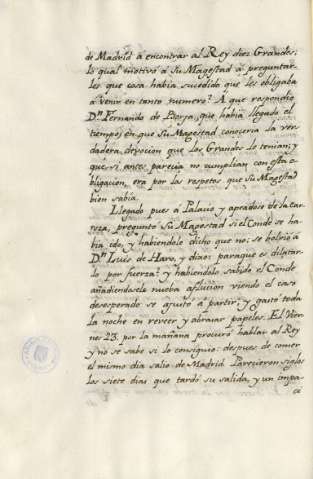 de Madrid á encontrar al Rey diez Grandes;
lo qual motivó á Su Magestad á preguntar-
les que cosa habia sucedido que les obligaba
á venir en tanto numero? A que respondio
Dⁿ. Fernando de Borja, que habia llegado el
tiempo, en que Su Magestad conoceria la ver-
dadera devocion que los Grandes le tenian; y
que si antes parecia no cumplian con esta o-
bligacion, era por los respetos que Su Magestad
bien sabia.
Llegado pues á Palacio y apeadose de la Car-
roza, preguntó Su Magestad si el Conde se ha-
bia ido, y habiendole dicho que no; se bolvió á
Dⁿ. Luis de Haro, y dixo: paraque es dilatar-
lo por fuerza? y habiendolo sabido el Conde
añadiendosele nueba afliccion viendo el caso
desesperado se ajustó á partir, y gastó toda
la noche en rever y abrasar papeles. El Vier-
nes 23. por la mañana procuró hablar al Rey
y no se sabe si lo consiguio: despues de comer
el mismo dia salio de Madrid. Parecieron siglos
los siete dias que tardó su salida, y un impa-
ci